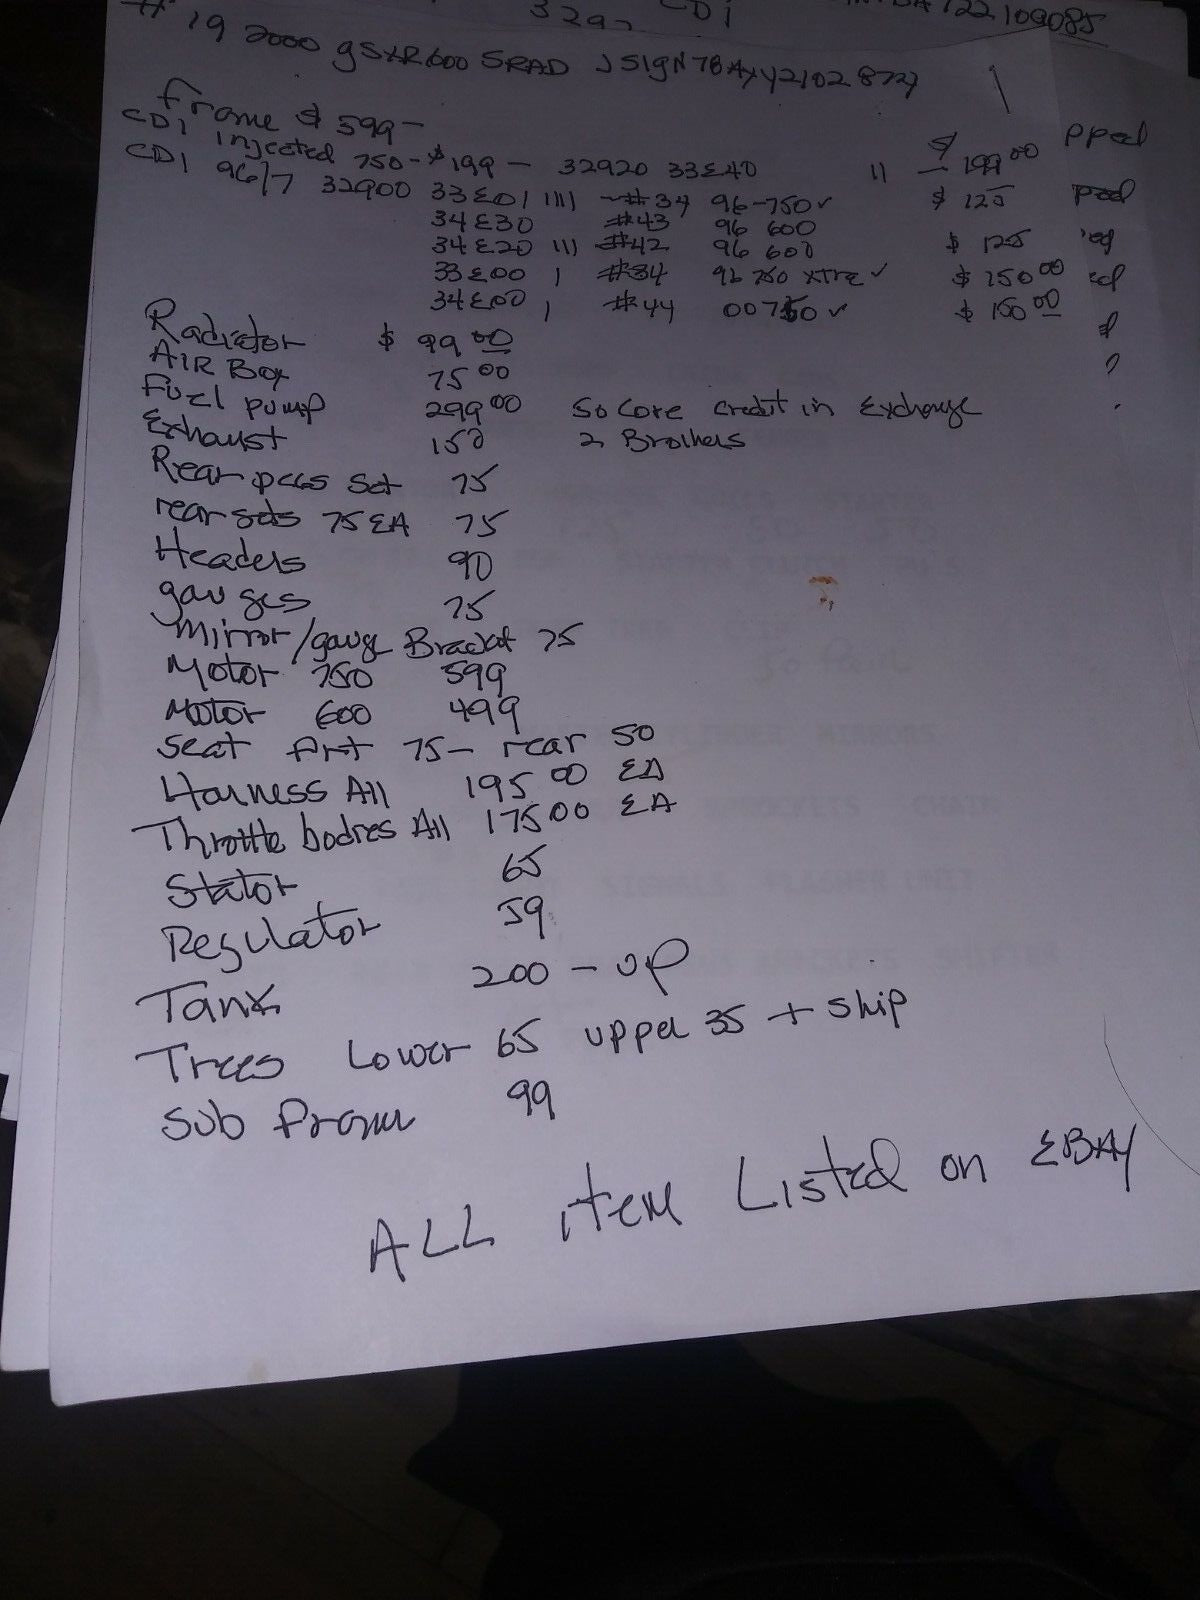 CDI 122109085
329
# 19 2000 gSXR600 SRAD JS1GN78A
Frame $ 599 -
CDI injected 750 - $199 - 32920 33E40 11 - $ 199 00 pped
CDI 96/7 32900 33E01 1111 #34 96-750 ✓ $ 125
34E30 #43 96 600
34E20 111 #42 96 600 $ 125
33E00 1 #34 96 750 xtre ✓ $ 150 00
34E00 1 #44 00750 ✓ $ 150 00
Radiator $ 99 00
AIR Box 75 00
Fuel pump 299 00 50 Core credit in Exchange
Exhaust 150 2 Brothers
Rear pegs set 75
rear sets 75 EA 75
Headers 90
gauges 75
Mirror/gauge Bracket 75
Motor 750 599
Motor 600 499
Seat frt 75 - rear 50
Harness All 195 00 EA
Throttle bodies All 175 00 EA
Stator 65
Regulator 59
Tank 200 - up
Trees Lower 65 upper 35 + ship
Sub frame 99
ALL item Listed on EBAY